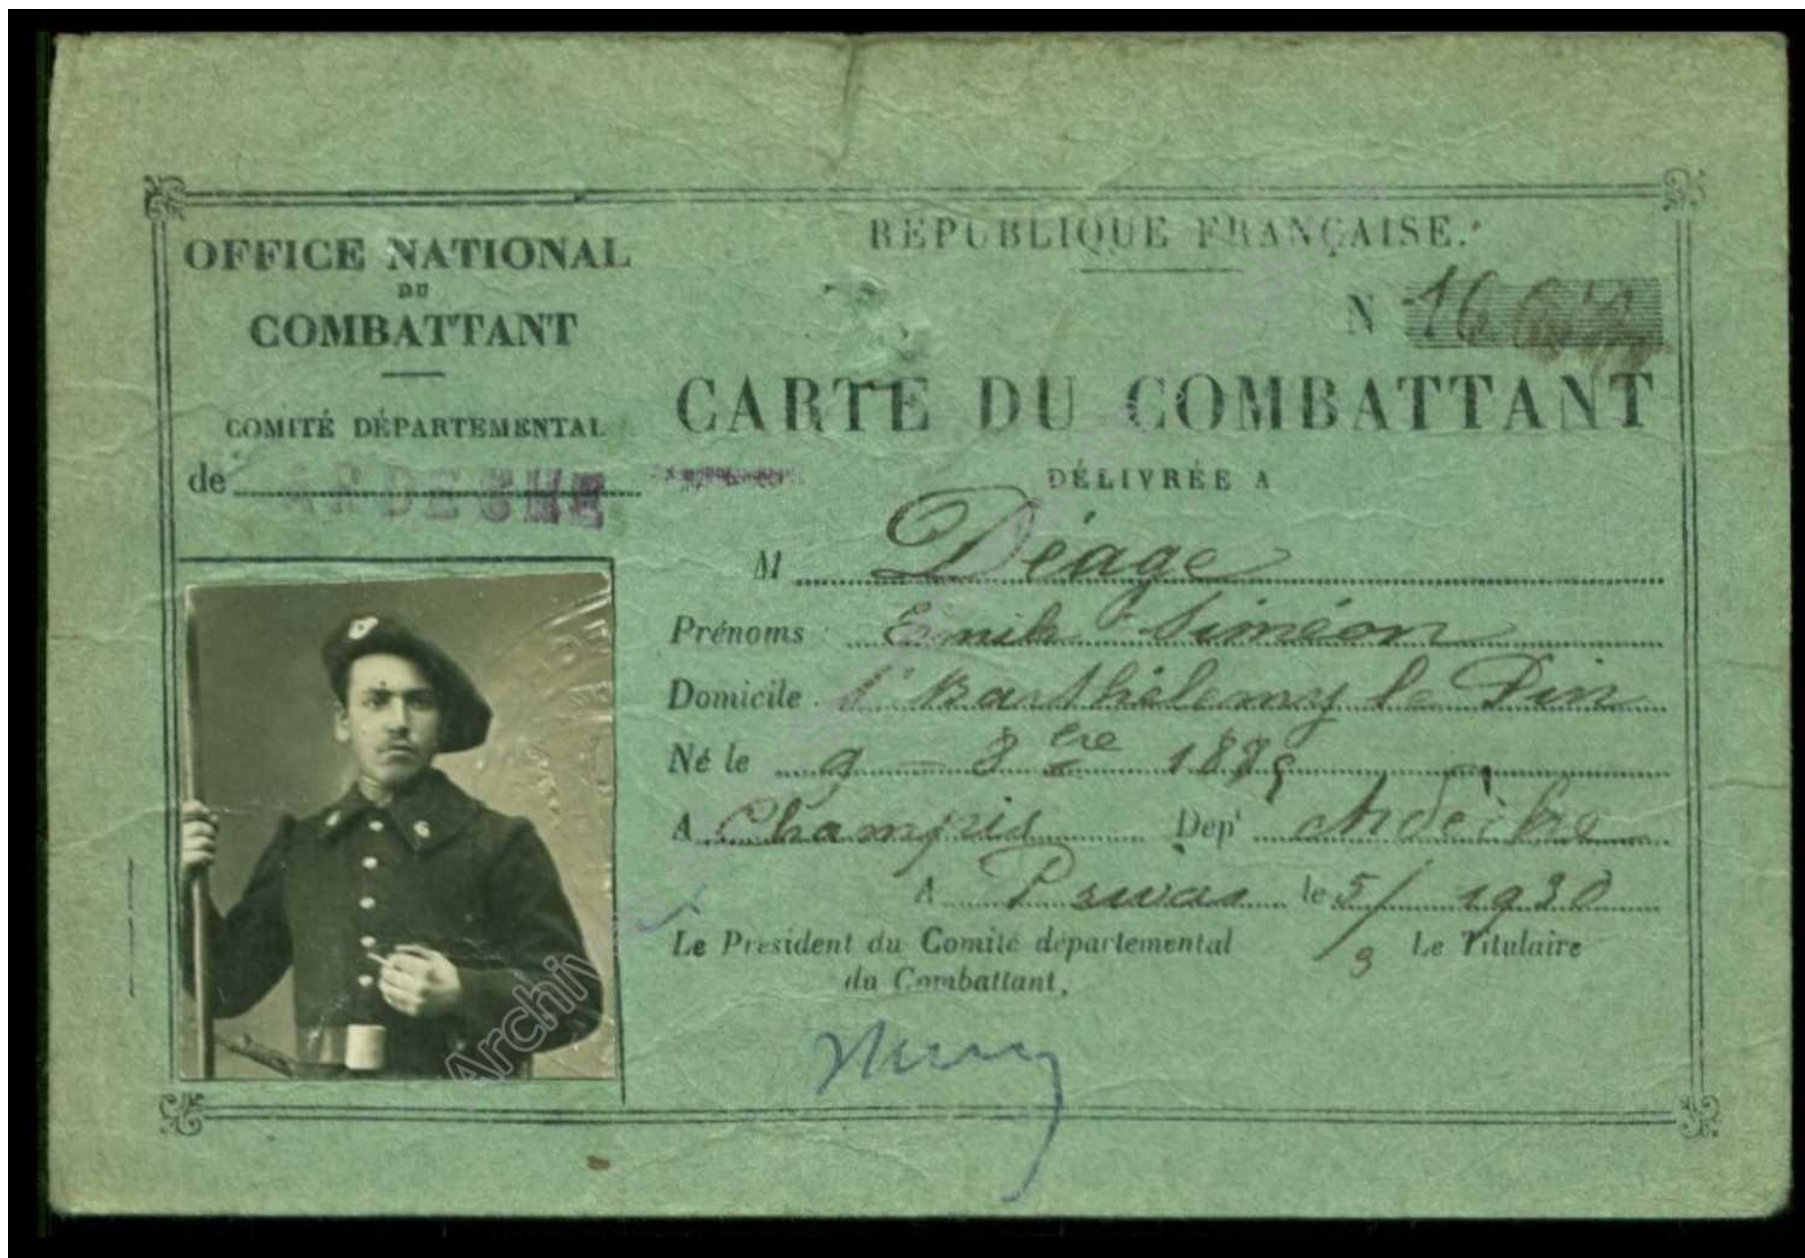 OFFICE NATIONAL
DU
COMBATTANT
COMITÉ DÉPARTEMENTAL
de ARDECHE
REPUBLIQUE FRANÇAISE.
N 16
CARTE DU COMBATTANT
DÉLIVRÉE A
M Déage
Prénoms : Emile Siméon
Domicile : St Barthélemy le Pin
Né le 9 - 8bre
A Champis Dept Ardèche
A Privas le 5/9 1930
Le President du Comité départemental
du Combattant,
Le Titulaire
Archiv